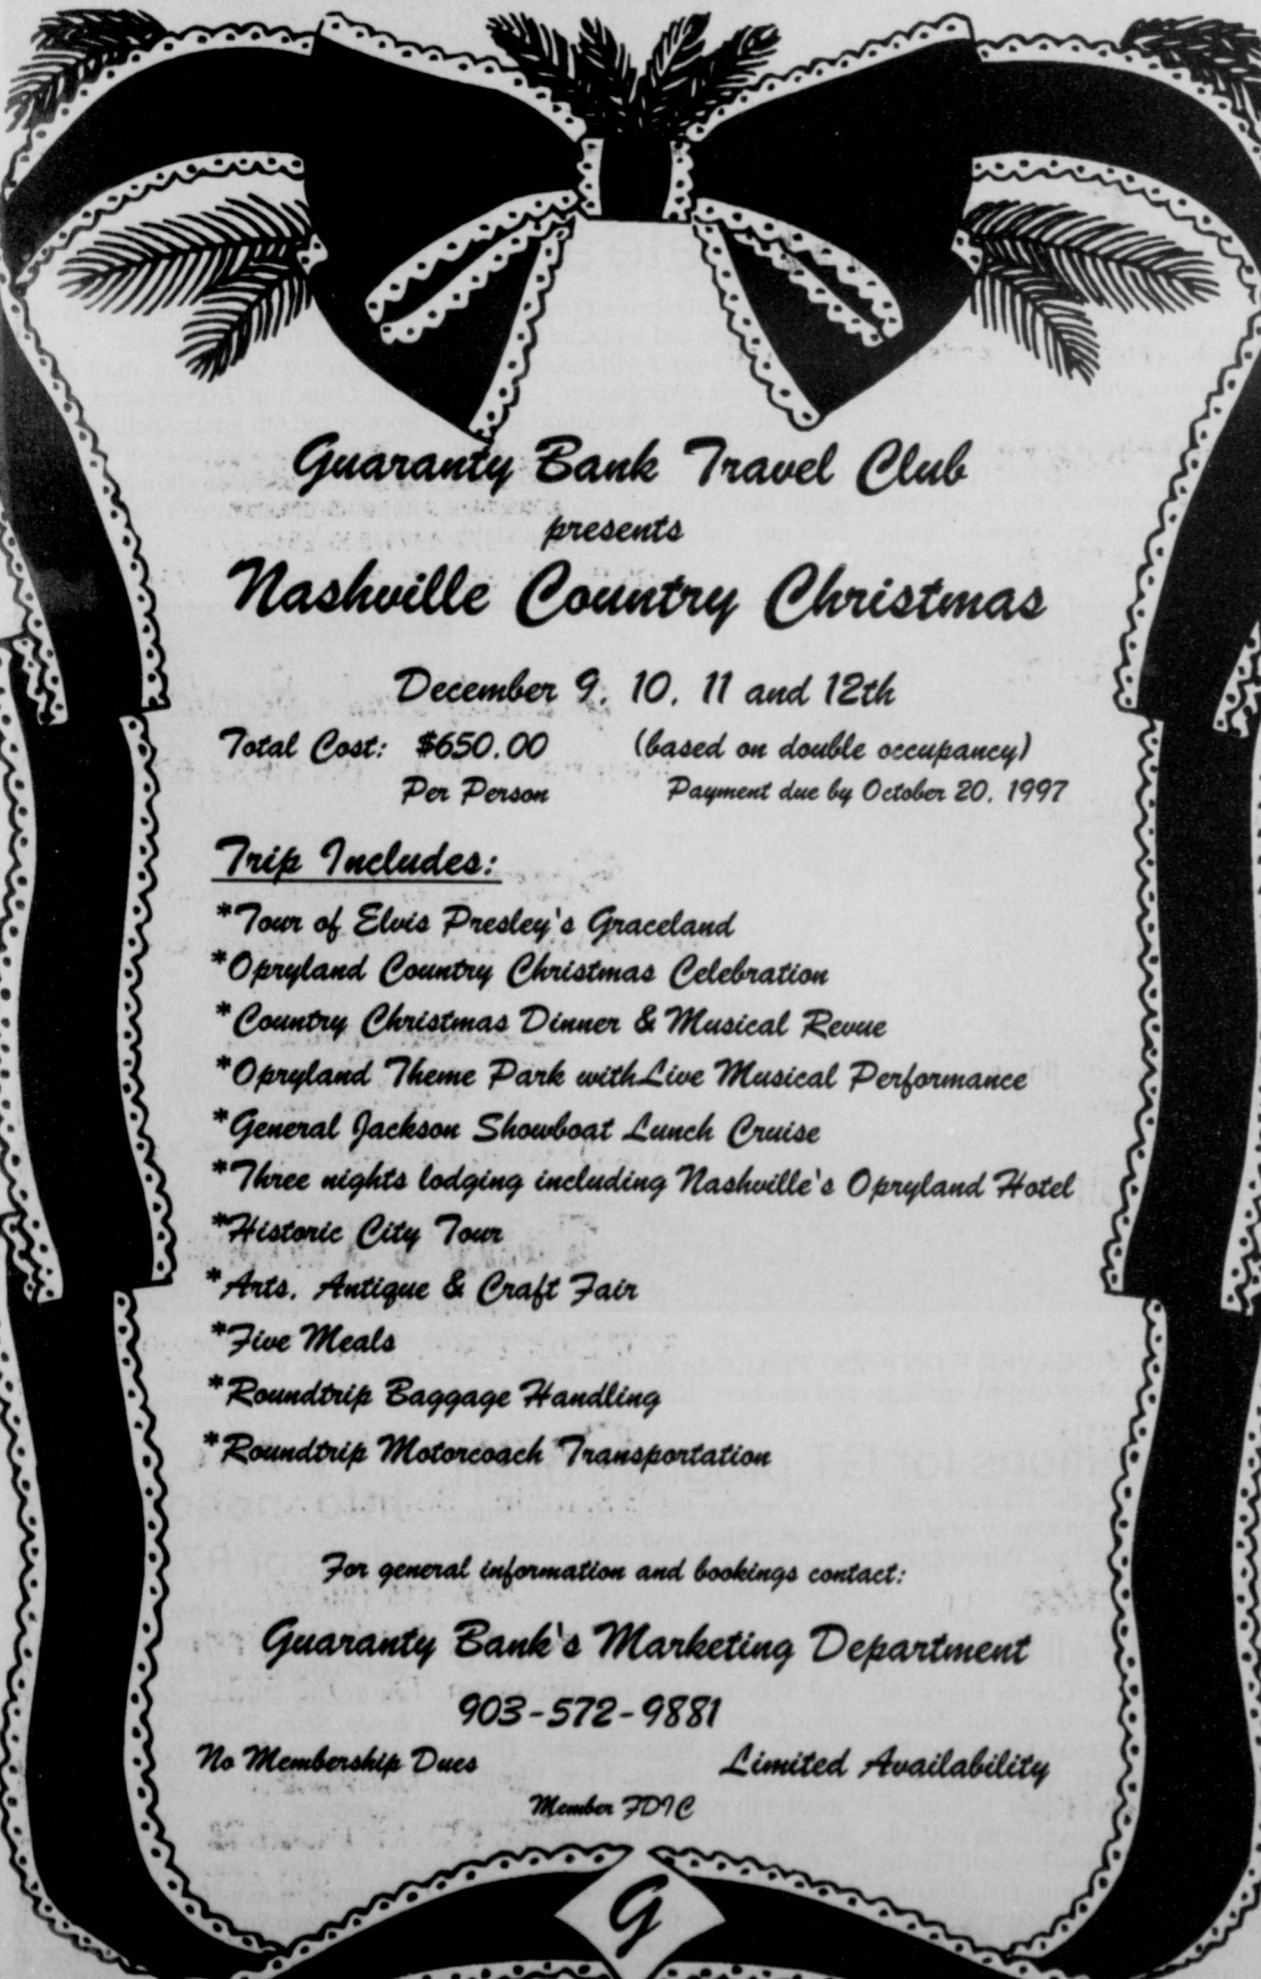 Guaranty Bank Travel Club
presents
Nashville Country Christmas
December 9, 10, 11 and 12th
Total Cost: $650.00 (based on double occupancy)
Per Person Payment due by October 20, 1997
Trip Includes:
*Tour of Elvis Presley's Graceland
*Opryland Country Christmas Celebration
*Country Christmas Dinner & Musical Revue
*Opryland Theme Park with Live Musical Performance
*General Jackson Showboat Lunch Cruise
*Three nights lodging including Nashville's Opryland Hotel
*Historic City Tour
*Arts, Antique & Craft Fair
*Five Meals
*Roundtrip Baggage Handling
*Roundtrip Motorcoach Transportation
For general information and bookings contact:
Guaranty Bank's Marketing Department
903-572-9881
No Membership Dues Limited Availability
Member FDIC
G